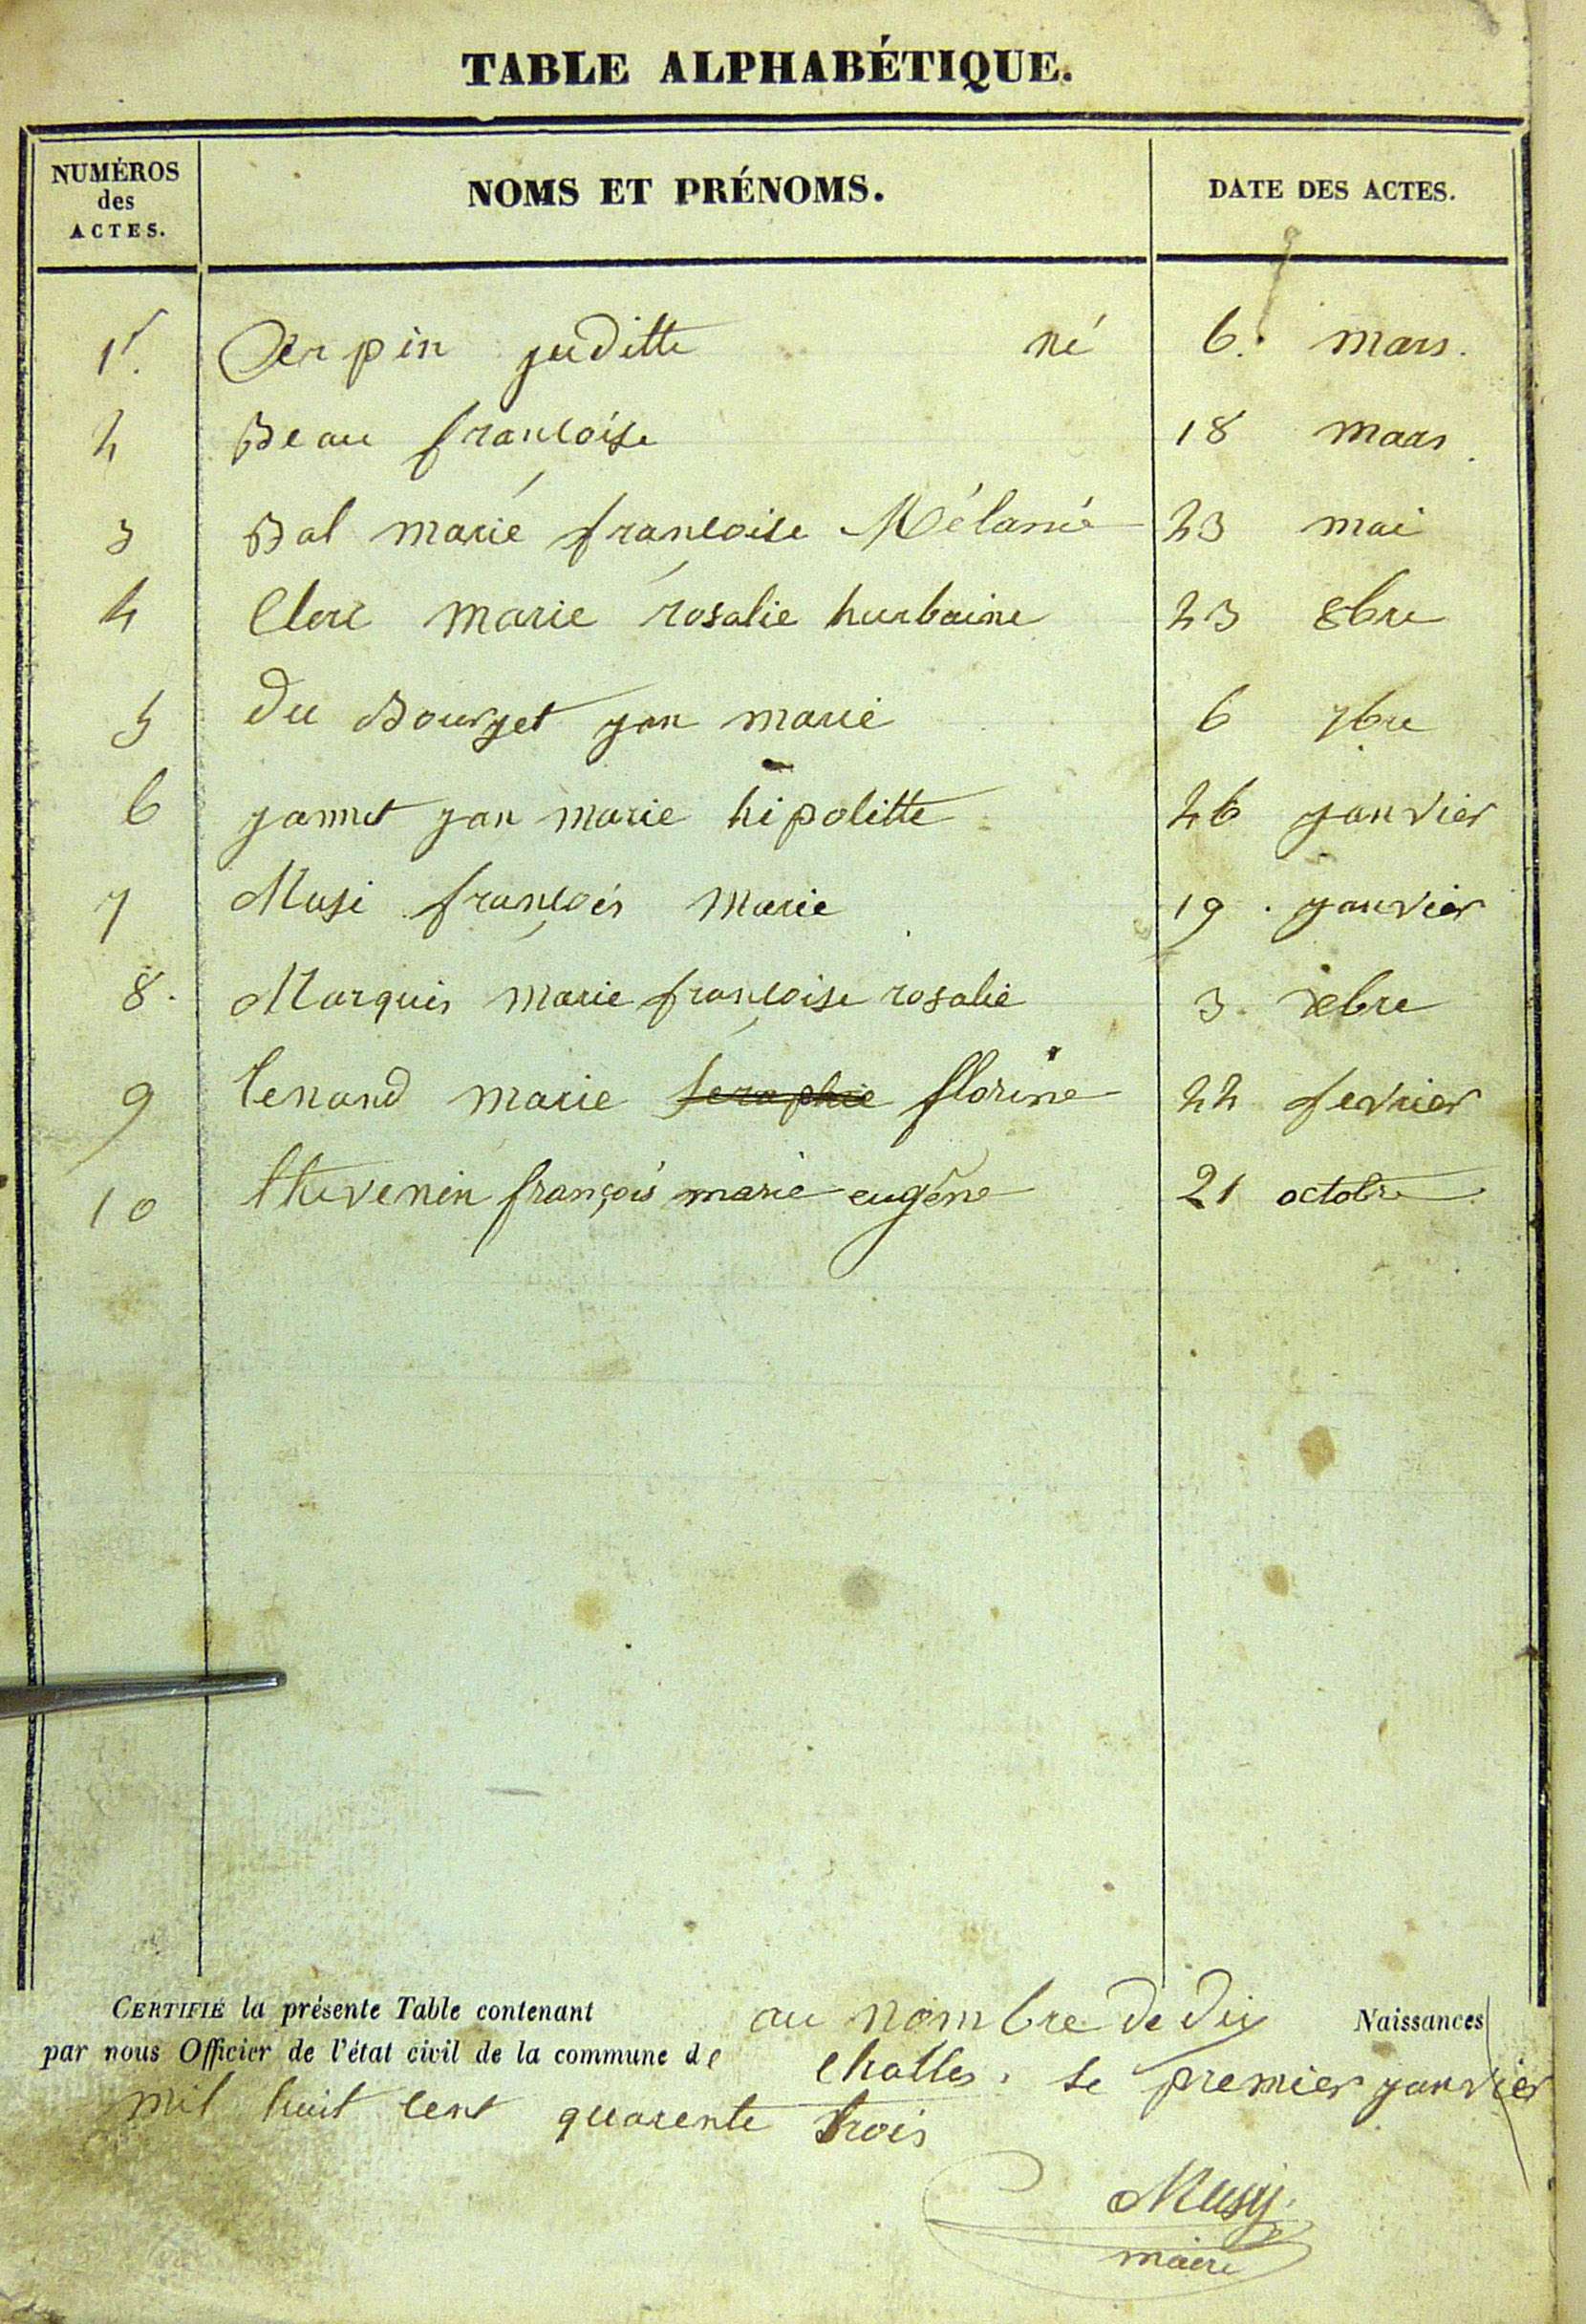 TABLE ALPHABÉTIQUE.
NUMÉROS des ACTES. NOMS ET PRÉNOMS. DATE DES ACTES.
1r. Arpin juditte né 6. mars.
2 Beau françoise 18 mars.
3 Bal marie françoise Mélanie 23 mai
4 Clerc marie rosalie hurbaine 23 8bre
5 du Bourget jan marie 6 7bre
6 jannet jan marie hipolitte 26 janvier
7 Musi françois marie 19 janvier
8. Marquis marie françoise rosalie 3 xbre
9 tenand marie seraphie florine 22 fevrier
10 thevenin françois marie eugène 21 octobre
CERTIFIÉ la présente Table contenant au nombre de dix Naissances
par nous Officier de l'état civil de la commune de Challes. le premier janvier
mil huit cent quarente trois
Musy
maire